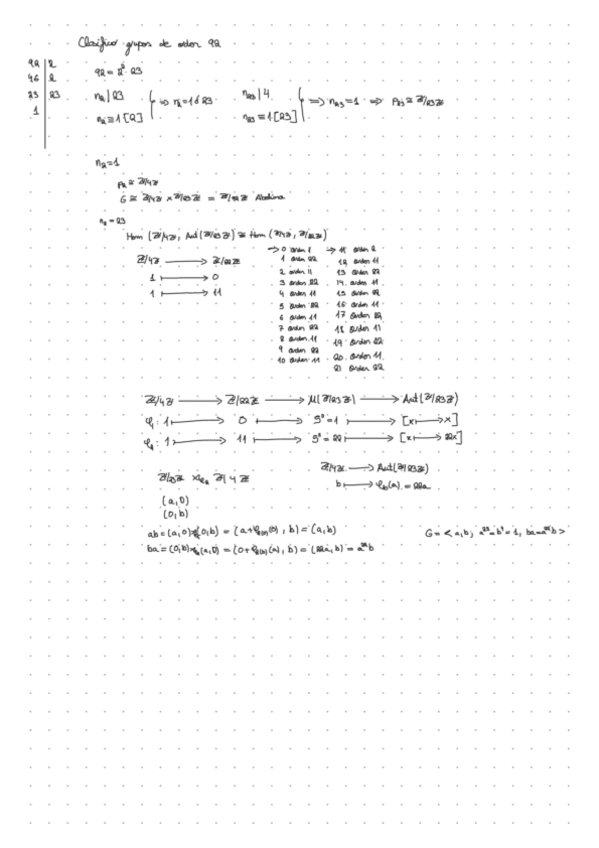 Clasifico grupos de orden 92
92 | 2
46 | 2
23 | 23
1
92 = 2² · 23
n₂ | 23
n₂ ≡ 1 [2]
⇒ n₂ = 1 ó 23
n₂₃ | 4
n₂₃ ≡ 1 [23]
⇒ n₂₃ = 1 ⇒ P₂₃ ≅ ℤ/23ℤ
n₂ = 1
P₂ ≅ ℤ/4ℤ
G ≅ ℤ/4ℤ × ℤ/23ℤ = ℤ/92ℤ Abeliano
n₂ = 23
Hom (ℤ/4ℤ, Aut(ℤ/23ℤ)) ≅ Hom (ℤ/4ℤ, ℤ/22ℤ)
ℤ/4ℤ ⟶ ℤ/22ℤ
1 ⟼ 0
1 ⟼ 11
→ 0 orden 1
1 orden 22
2 orden 11
3 orden 22
4 orden 11
5 orden 22
6 orden 11
7 orden 22
8 orden 11
9 orden 22
10 orden 11
→ 11 orden 2
12 orden 11
13 orden 22
14 orden 11
15 orden 22
16 orden 11
17 orden 22
18 orden 11
19 orden 22
20 orden 11
21 orden 22
ℤ/4ℤ ⟶ ℤ/22ℤ ⟶ U(ℤ/23ℤ) ⟶ Aut(ℤ/23ℤ)
φ₁: 1 ⟼ 0 ⟼ 5⁰ = 1 ⟼ [x ⟼ x]
φ₂: 1 ⟼ 11 ⟼ = 22 ⟼ [x ⟼ 22x]
ℤ/23ℤ ⋊ ℤ/4ℤ
ℤ/4ℤ ⟶ Aut(ℤ/23ℤ)
b ⟼ (a) = 22a
(a, 0)
(0, b)
ab = (a, 0)(0, b) = (a + (0), b) = (a, b)
ba = (0, b)(a, 0) = (0 + (a), b) = (22a, b) = a²²b
G = < a, b; a²³ = b⁴ = 1, ba = a²²b >